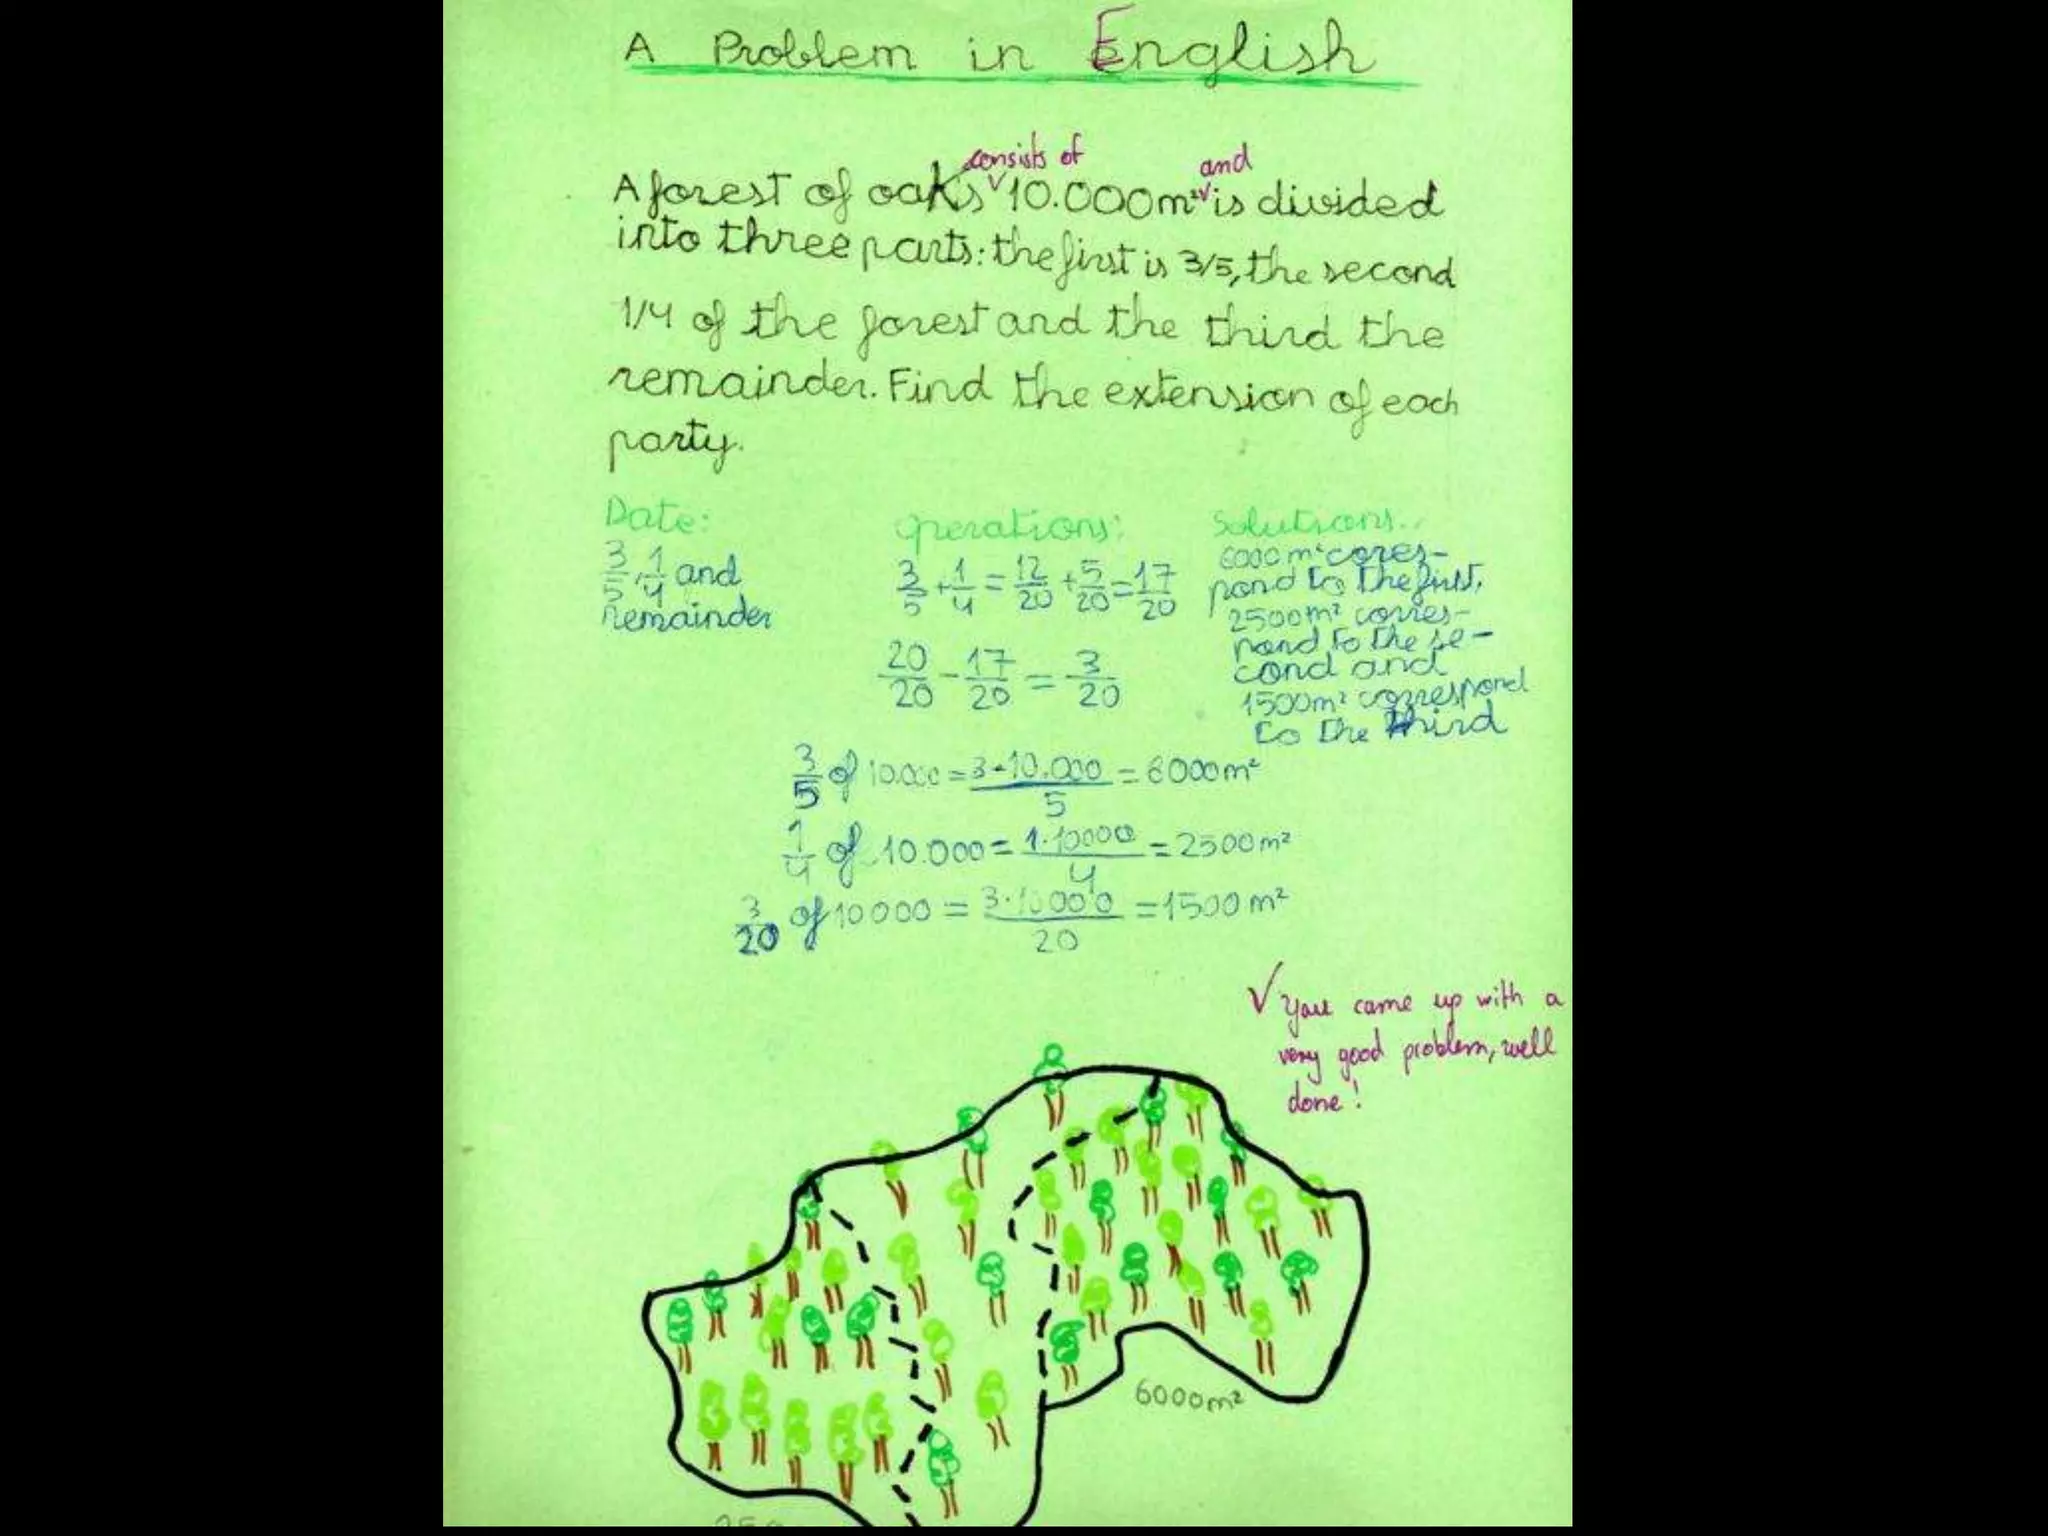 A Problem in English
consists of and
A forest of oaks 10.000m² is divided
into three parts: the first is 3/5, the second
1/4 of the forest and the third the
remainder. Find the extension of each
party.
Date:
3/5, 1/4 and
remainder
operations:
3/5 + 1/4 = 12/20 + 5/20 = 17/20
20/20 - 17/20 = 3/20
Solutions:
6000m² corres-
pond to the first,
2500m² corres-
pond to the se-
cond and
1500m² correspond
to the third
3/5 of 10.000 = 3·10.000/5 = 6000m²
1/4 of 10.000 = 1·10000/4 = 2500m²
3/20 of 10000 = 3·10000/20 = 1500m²
√ You came up with a
very good problem, well
done!
6000m²